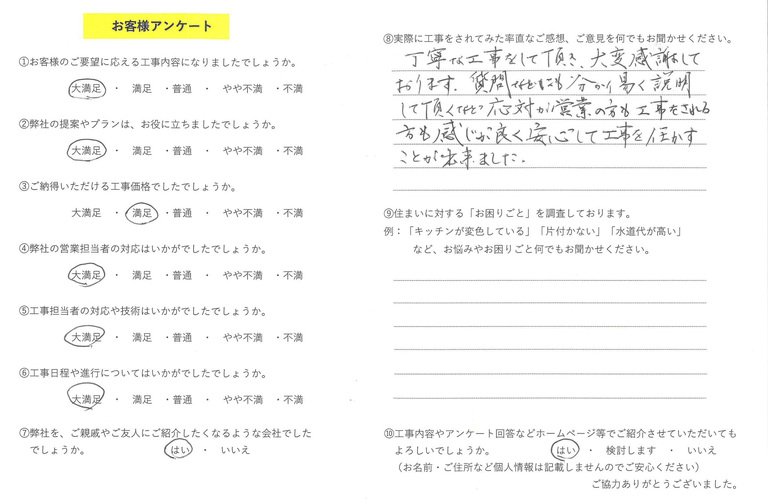 お客様アンケート
①お客様のご要望に応える工事内容になりましたでしょうか。
大満足 ・ 満足 ・普通 ・ やや不満 ・不満
②弊社の提案やプランは、お役に立ちましたでしょうか。
大満足 ・ 満足 ・普通 ・ やや不満 ・不満
③ご納得いただける工事価格でしたでしょうか。
大満足 ・ 満足 ・普通 ・ やや不満 ・不満
④弊社の営業担当者の対応はいかがでしたでしょうか。
大満足 ・ 満足 ・普通 ・ やや不満 ・不満
⑤工事担当者の対応や技術はいかがでしたでしょうか。
大満足 ・ 満足 ・普通 ・ やや不満 ・不満
⑥工事日程や進行についてはいかがでしたでしょうか。
大満足 ・ 満足 ・普通 ・ やや不満 ・不満
⑦弊社を、ご親戚やご友人にご紹介したくなるような会社でした
でしょうか。 はい ・ いいえ
⑧実際に工事をされてみた率直なご感想、ご意見を何でもお聞かせください。
丁寧な工事をして頂き、大変感謝して
おります。質問なども分かり易く説明
して頂くなど応対が営業の方も工事をされる
方も感じが良く安心して工事を任かす
ことが出来ました。
⑨住まいに対する「お困りごと」を調査しております。
例：「キッチンが変色している」「片付かない」「水道代が高い」
など、お悩みやお困りごと何でもお聞かせください。
⑩工事内容やアンケート回答などホームページ等でご紹介させていただいても
よろしいでしょうか。 はい ・ 検討します ・ いいえ
（お名前・ご住所など個人情報は記載しませんのでご安心ください）
ご協力ありがとうございました。